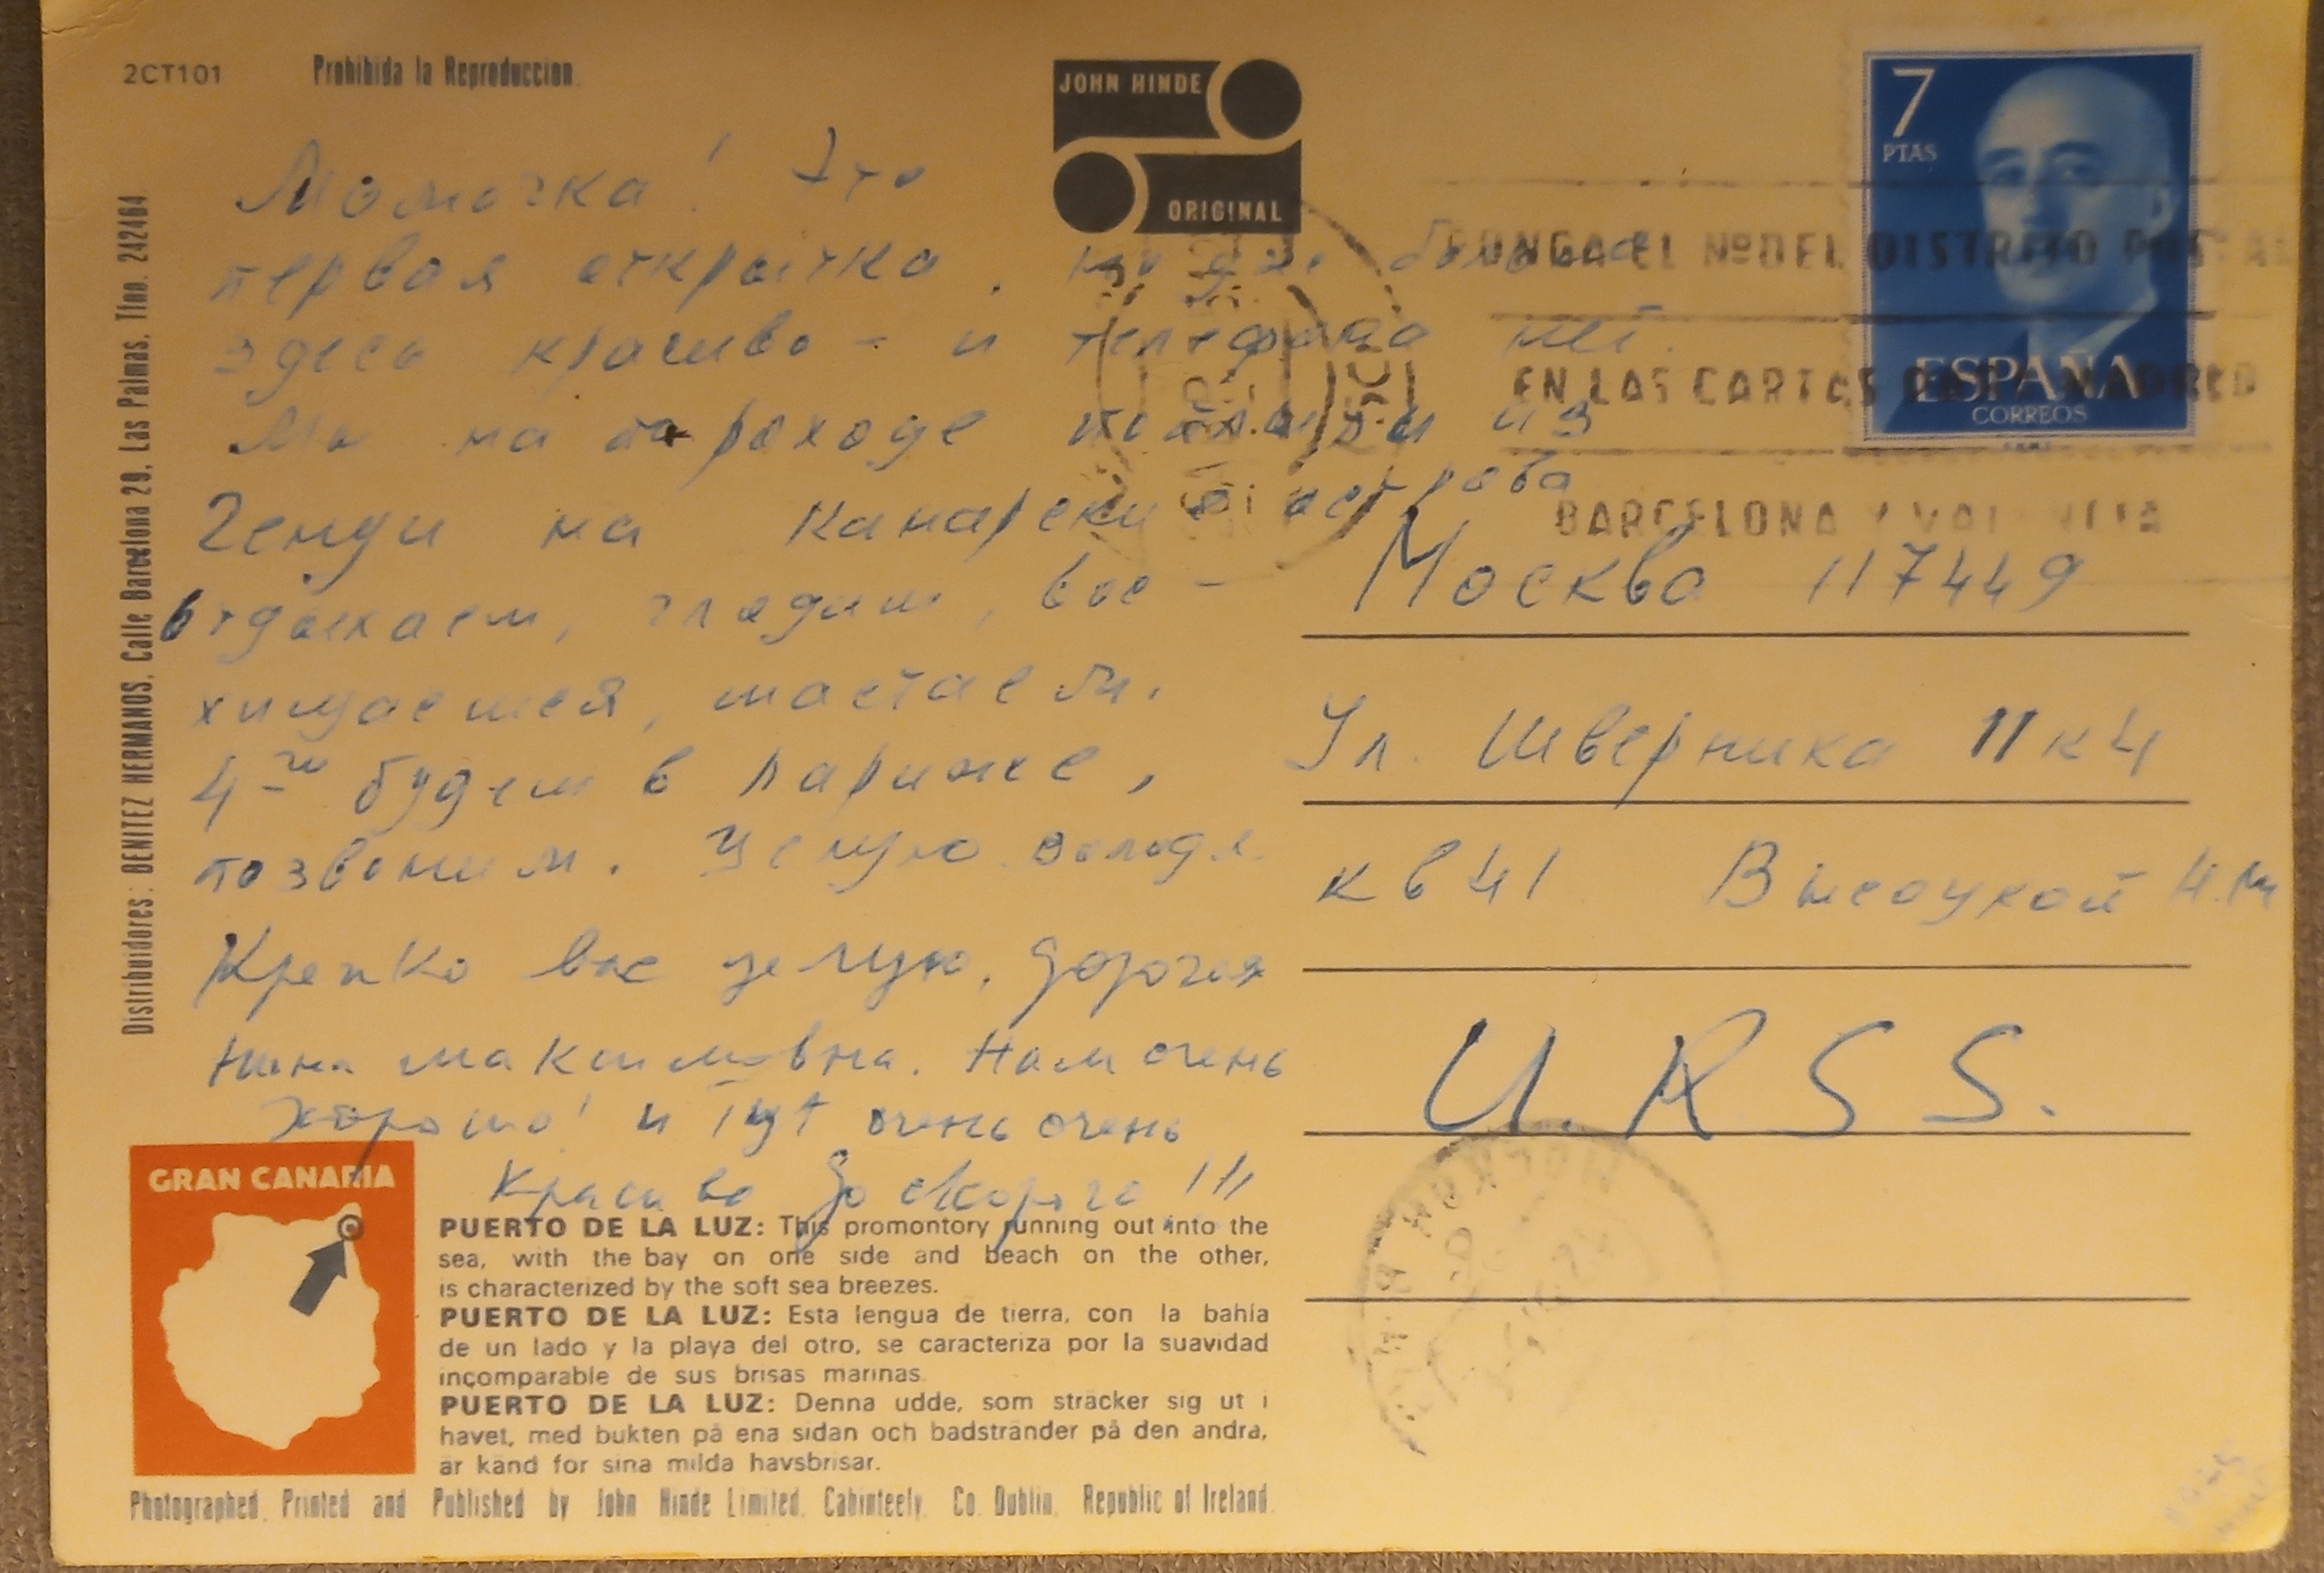 2CT101
Prohibida la Reproduccion.
JOHN HINDE
ORIGINAL
7
PTAS
ESPAÑA
CORREOS
PONGA EL Nº DEL DISTRITO POSTAL
EN LAS CARTAS PARA MADRID
BARCELONA Y VALENCIA
Distribuidores: BENITEZ HERMANOS, Calle Barcelona 29, Las Palmas, Tfno. 242464
Мамочка! Это
первая открытка,
здесь красиво - и телефона нет.
Мы на пароходе поплыли из
Генуи на Канарские острова
отдыхаем, глядим, вос-
хищаемся, шастаем.
4го будем в Париже,
позвоним. Целую Володя.
Крепко вас целую, дорогая
Нина Максимовна. Нам очень
хорошо! и тут очень очень
красиво До скорого!!!
Москва 117449
Ул. Шверника 11 к 4
кв 41 Высоцкой Н.М
U.R.S.S.
МОСКВА
GRAN CANARIA
PUERTO DE LA LUZ: This promontory running out into the
sea, with the bay on one side and beach on the other,
is characterized by the soft sea breezes.
PUERTO DE LA LUZ: Esta lengua de tierra, con la bahía
de un lado y la playa del otro, se caracteriza por la suavidad
incomparable de sus brisas marinas.
PUERTO DE LA LUZ: Denna udde, som sträcker sig ut i
havet, med bukten på ena sidan och badstränder på den andra,
är känd for sina milda havsbrisar.
Photographed, Printed and Published by John Hinde Limited, Cabinteely, Co. Dublin, Republic of Ireland.